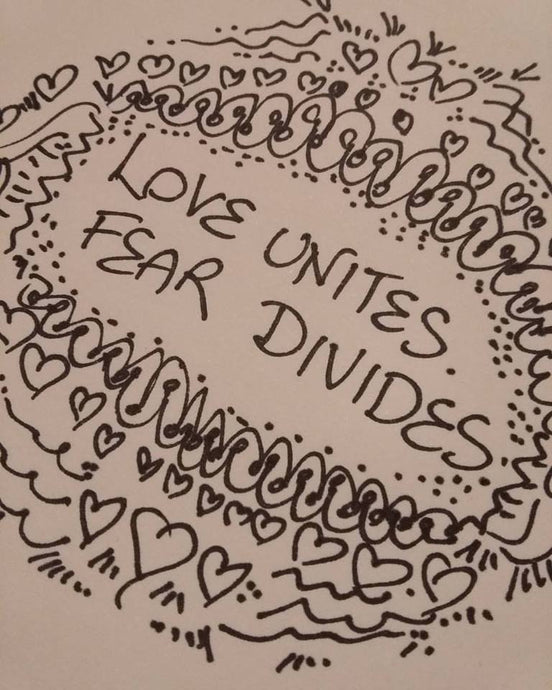 LOVE UNITES.
FEAR DIVIDES